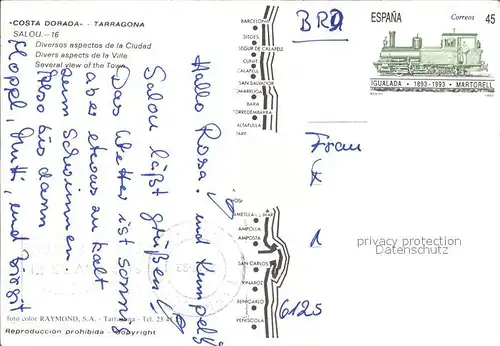 «COSTA DORADA» - TARRAGONA
SALOU.—16
Diversos aspectos de la Ciudad
Divers aspects de la Ville
Several view of the Town
Hallo Rosa! und Kumpel
Salou läßt grüßen!
Das Wetter ist sonnig
aber etwas zu kalt
zum Schwimmen
Also bis damn
Moppel, Mutti, und Birgit
foto color RAYMOND, S.A. - Tarragona - Tel. 23
Reproducción prohibida - Copyright
BARCELONA
SITGES
SEGUR DE CALAFELL
CUNIT
CALAFELL
SAN SALVADOR
COMARRUGA
BARA
TORREDEMBARRA
ALTAFULLA
TARR
AMETLLA D. MAR
AMPOLLA
AMPOSTA
SAN CARLOS
VINAROZ
BENICARLO
PEÑISCOLA
BRD
ESPAÑA
Correos
45
IGUALADA · 1893-1993 · MARTORELL
Frau
1
privacy protection
Datenschutz
6125